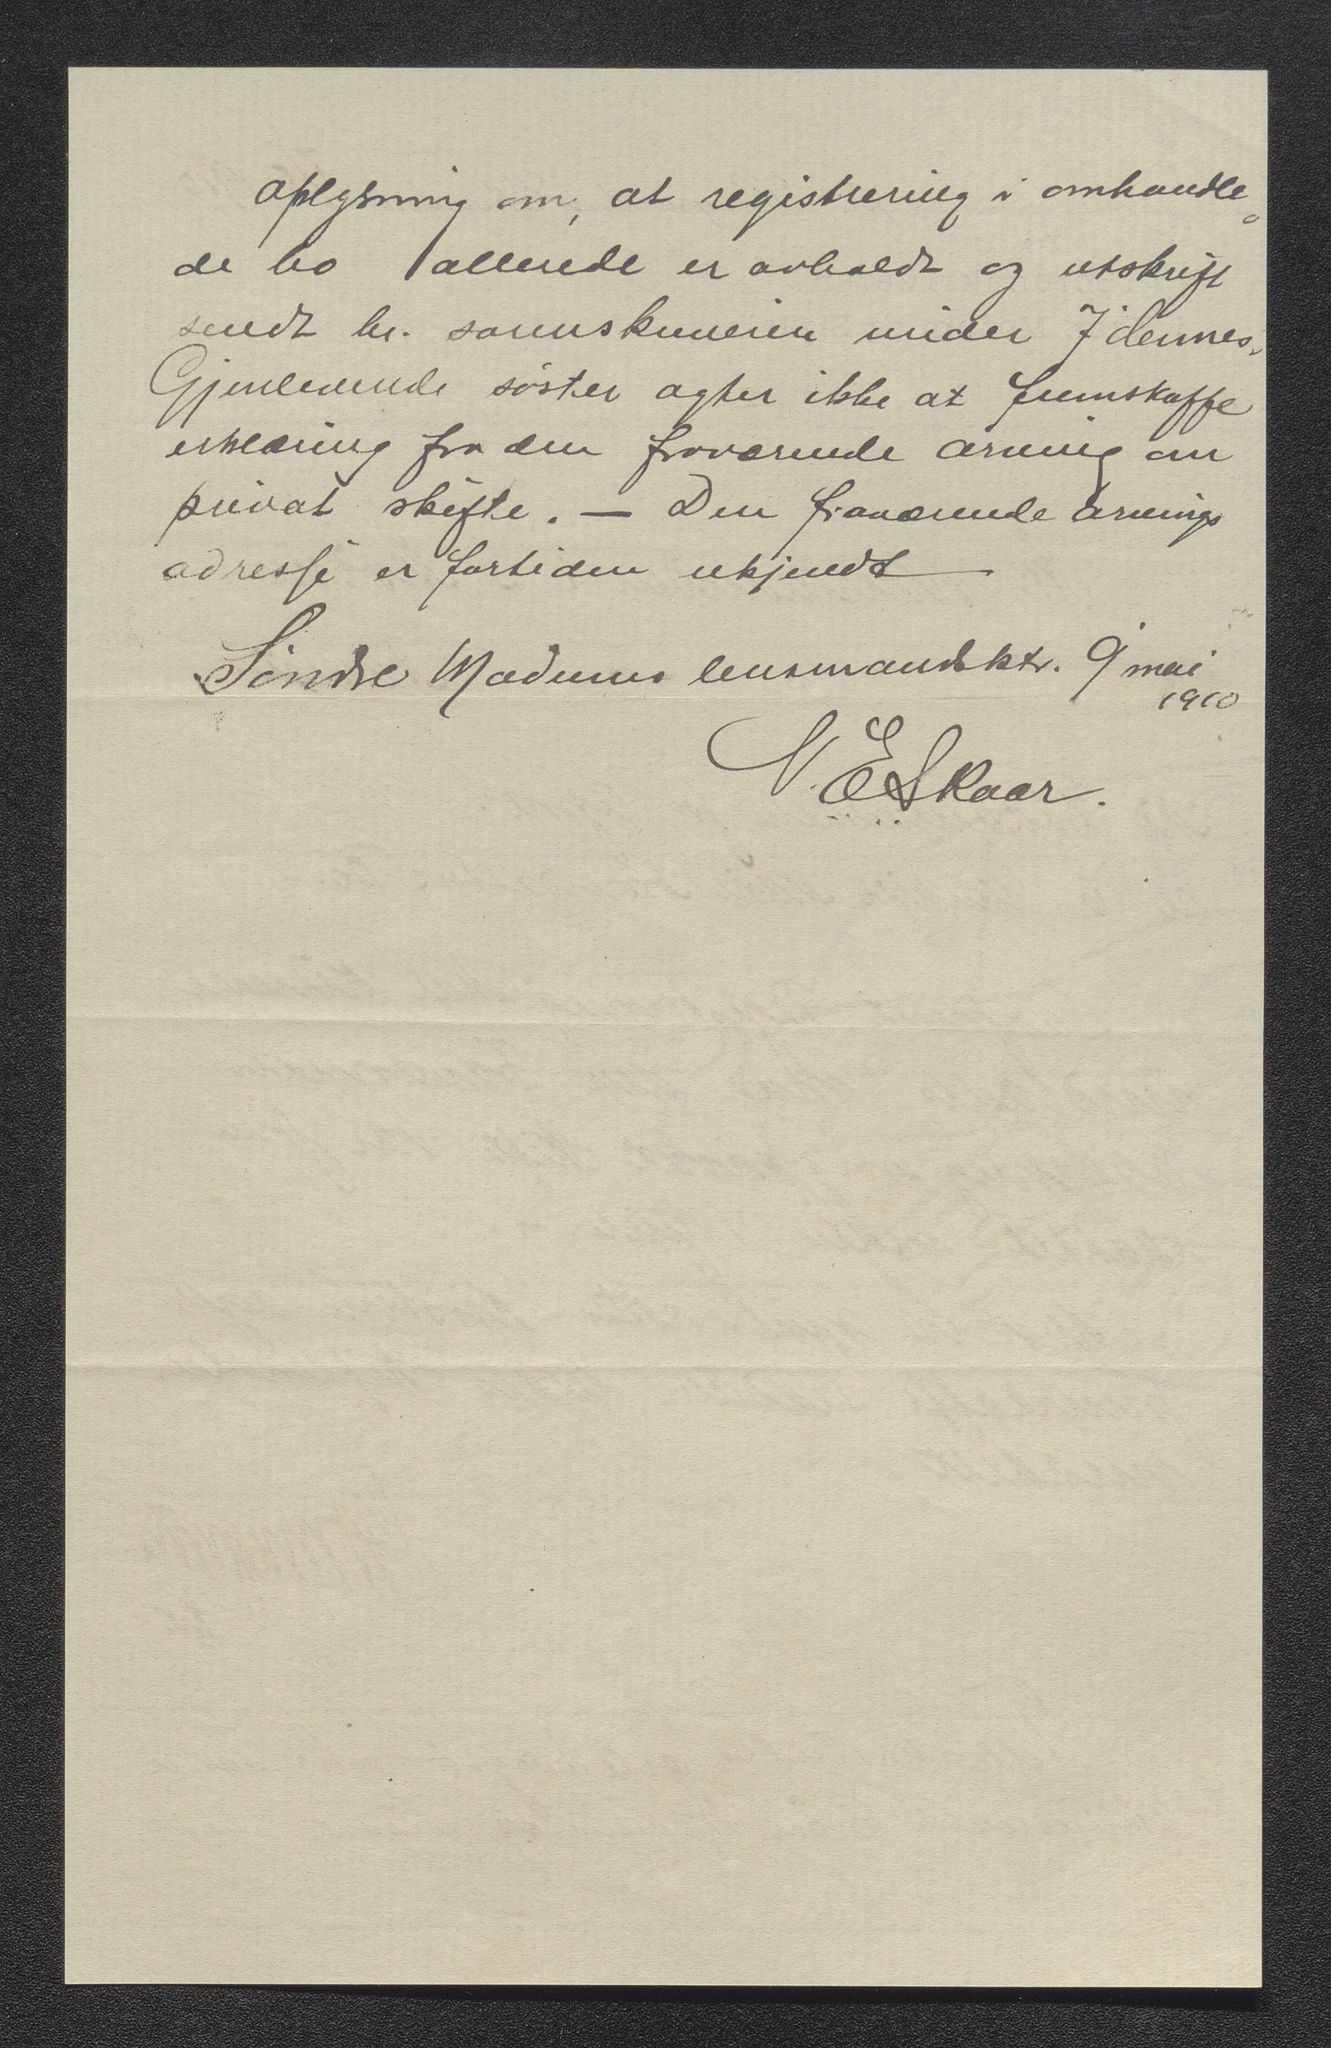 oplysning om, at registrering i omhandle-
de bo allerede er avholdt og utskrift
sendt hr. sorenskriveren under 7 dennes.
Gjenlevende søster agter ikke at fremskaffe
erklæring fra den fraværende arving om
privat skifte. — Den fraværende arvings
adresse er fortiden ukjendt —
Søndre Modums lensmandsktr. 9 mai
1910
N. E Skaar.